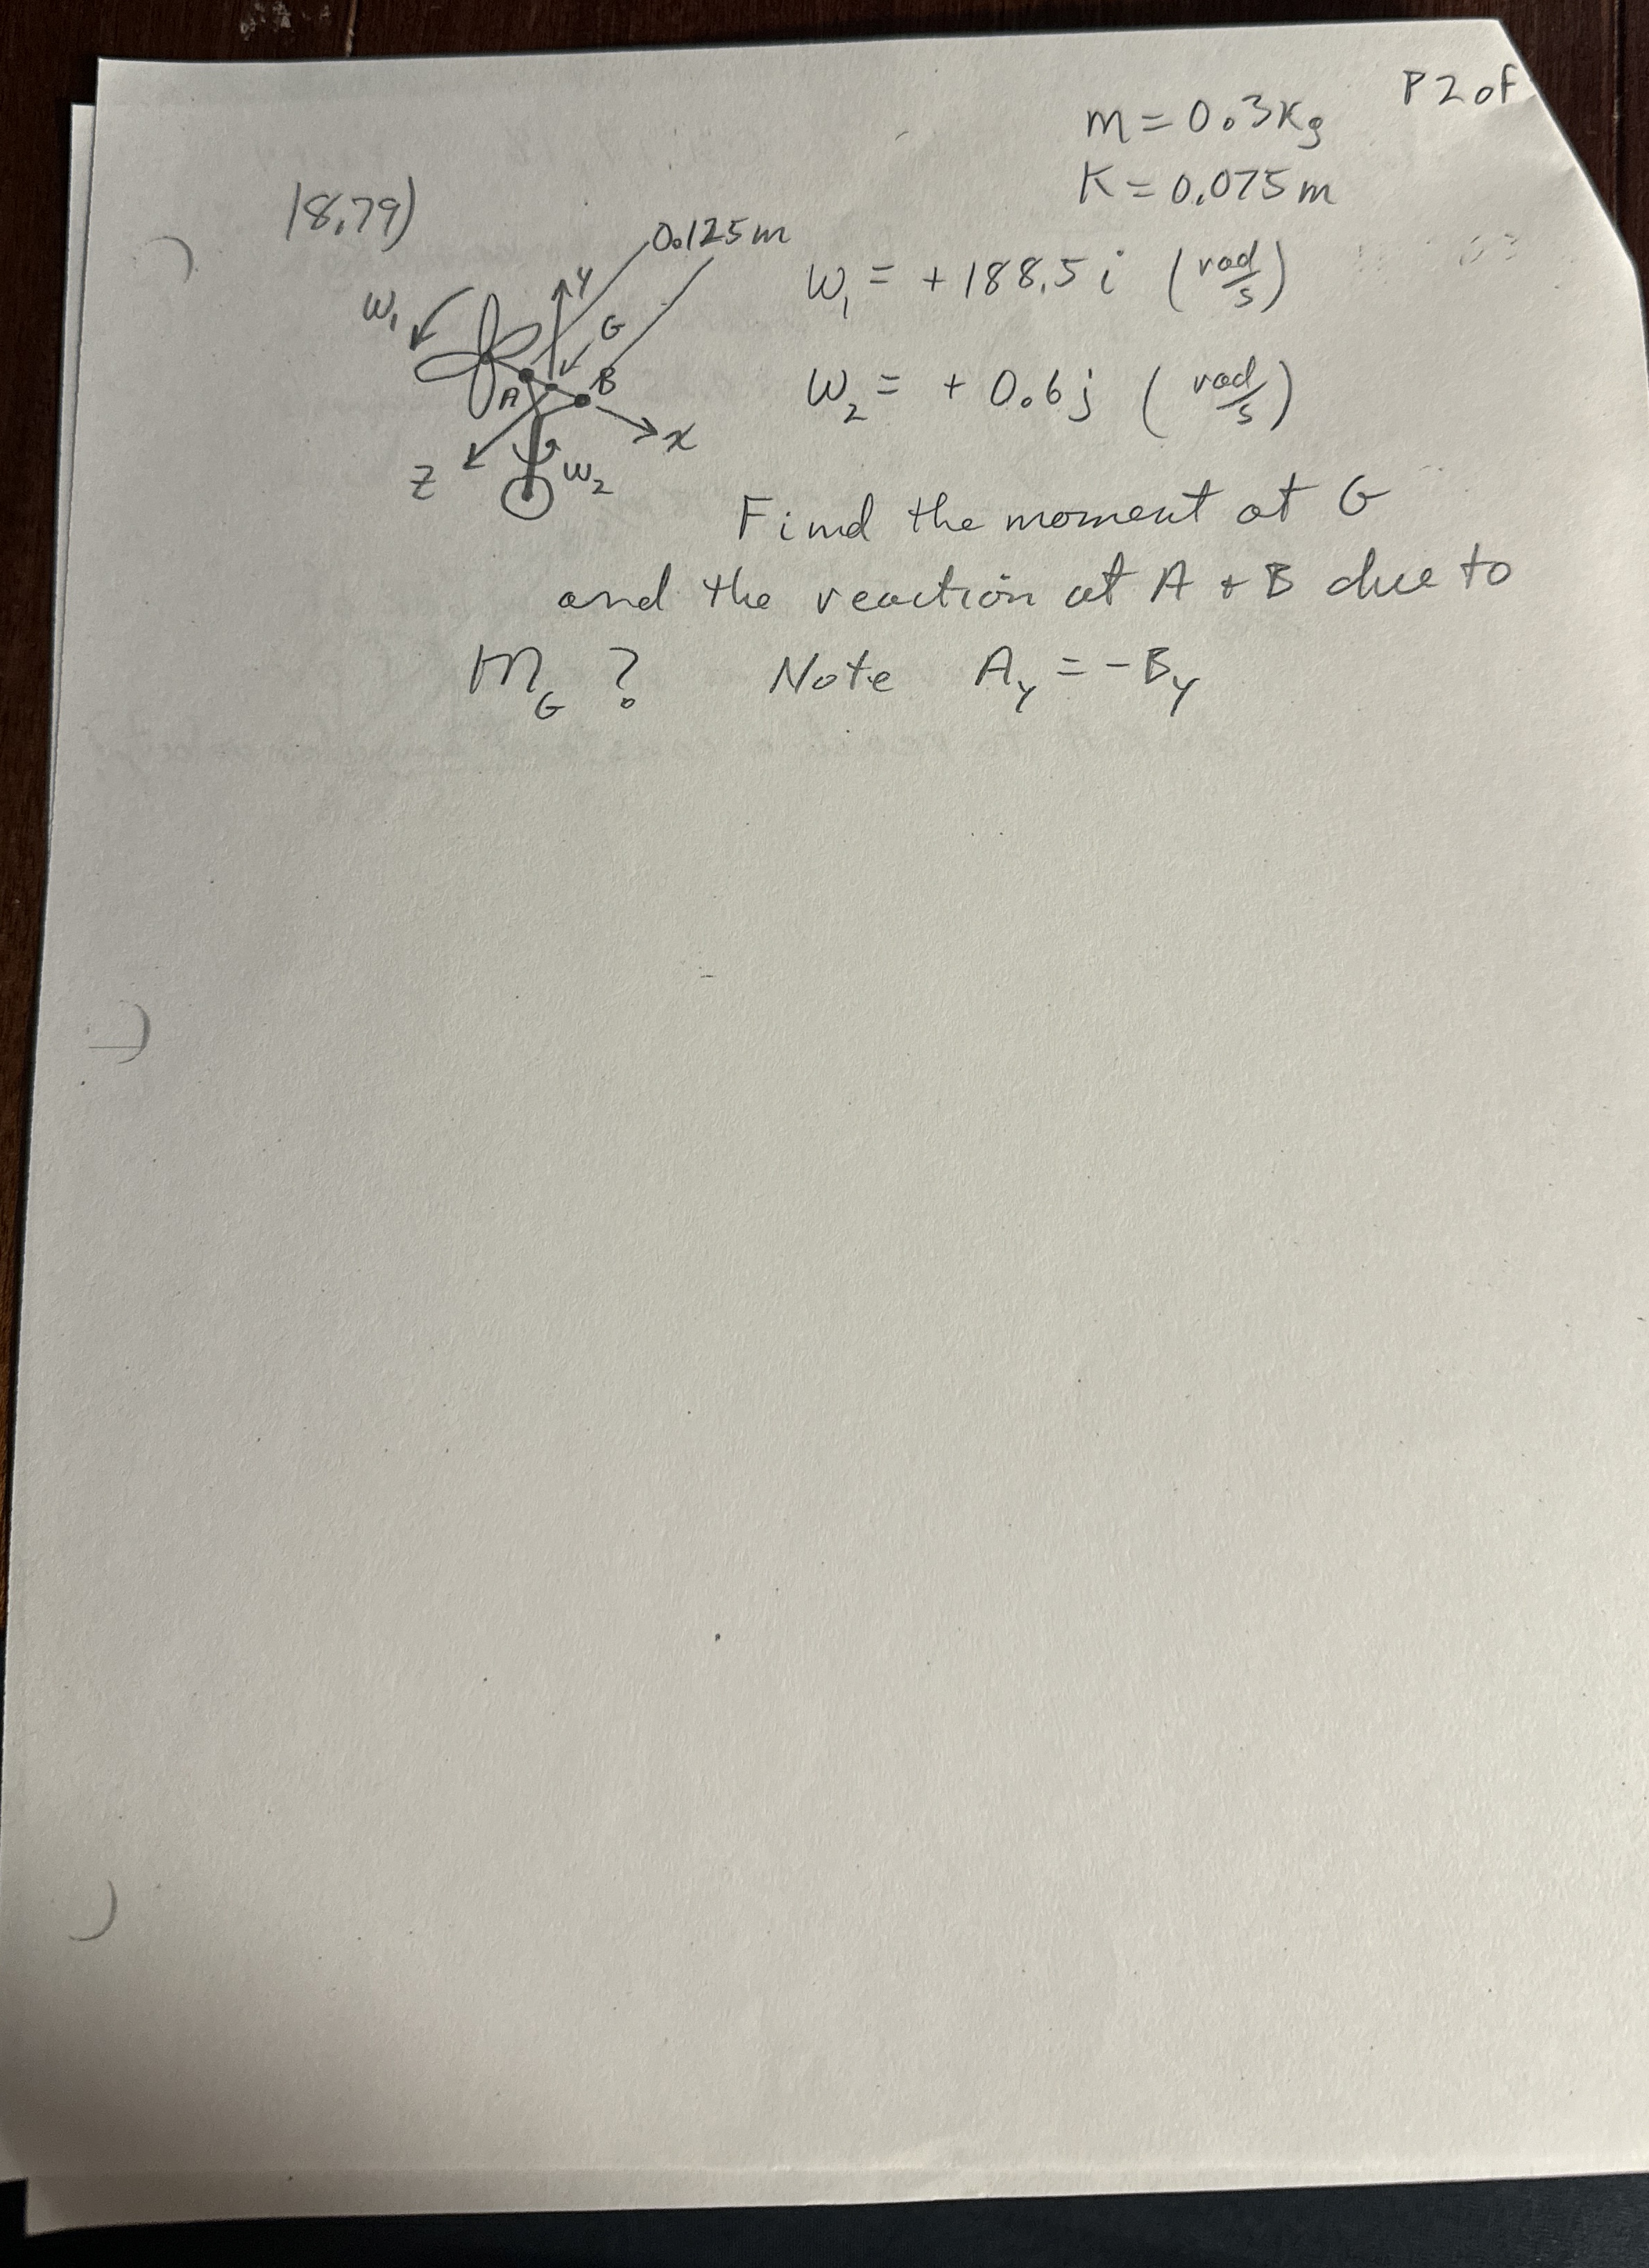 P2 of
m = 0.3Kg
K = 0.075m
18.79)
0.125m
ω₁ = +188.5 i (rad/s)
ω₁
Y
G
A
B
x
Z
ω₂
ω₂ = + 0.6j (rad/s)
Find the moment at G
and the reaction at A + B due to
M_G ? Note A_y = -B_y